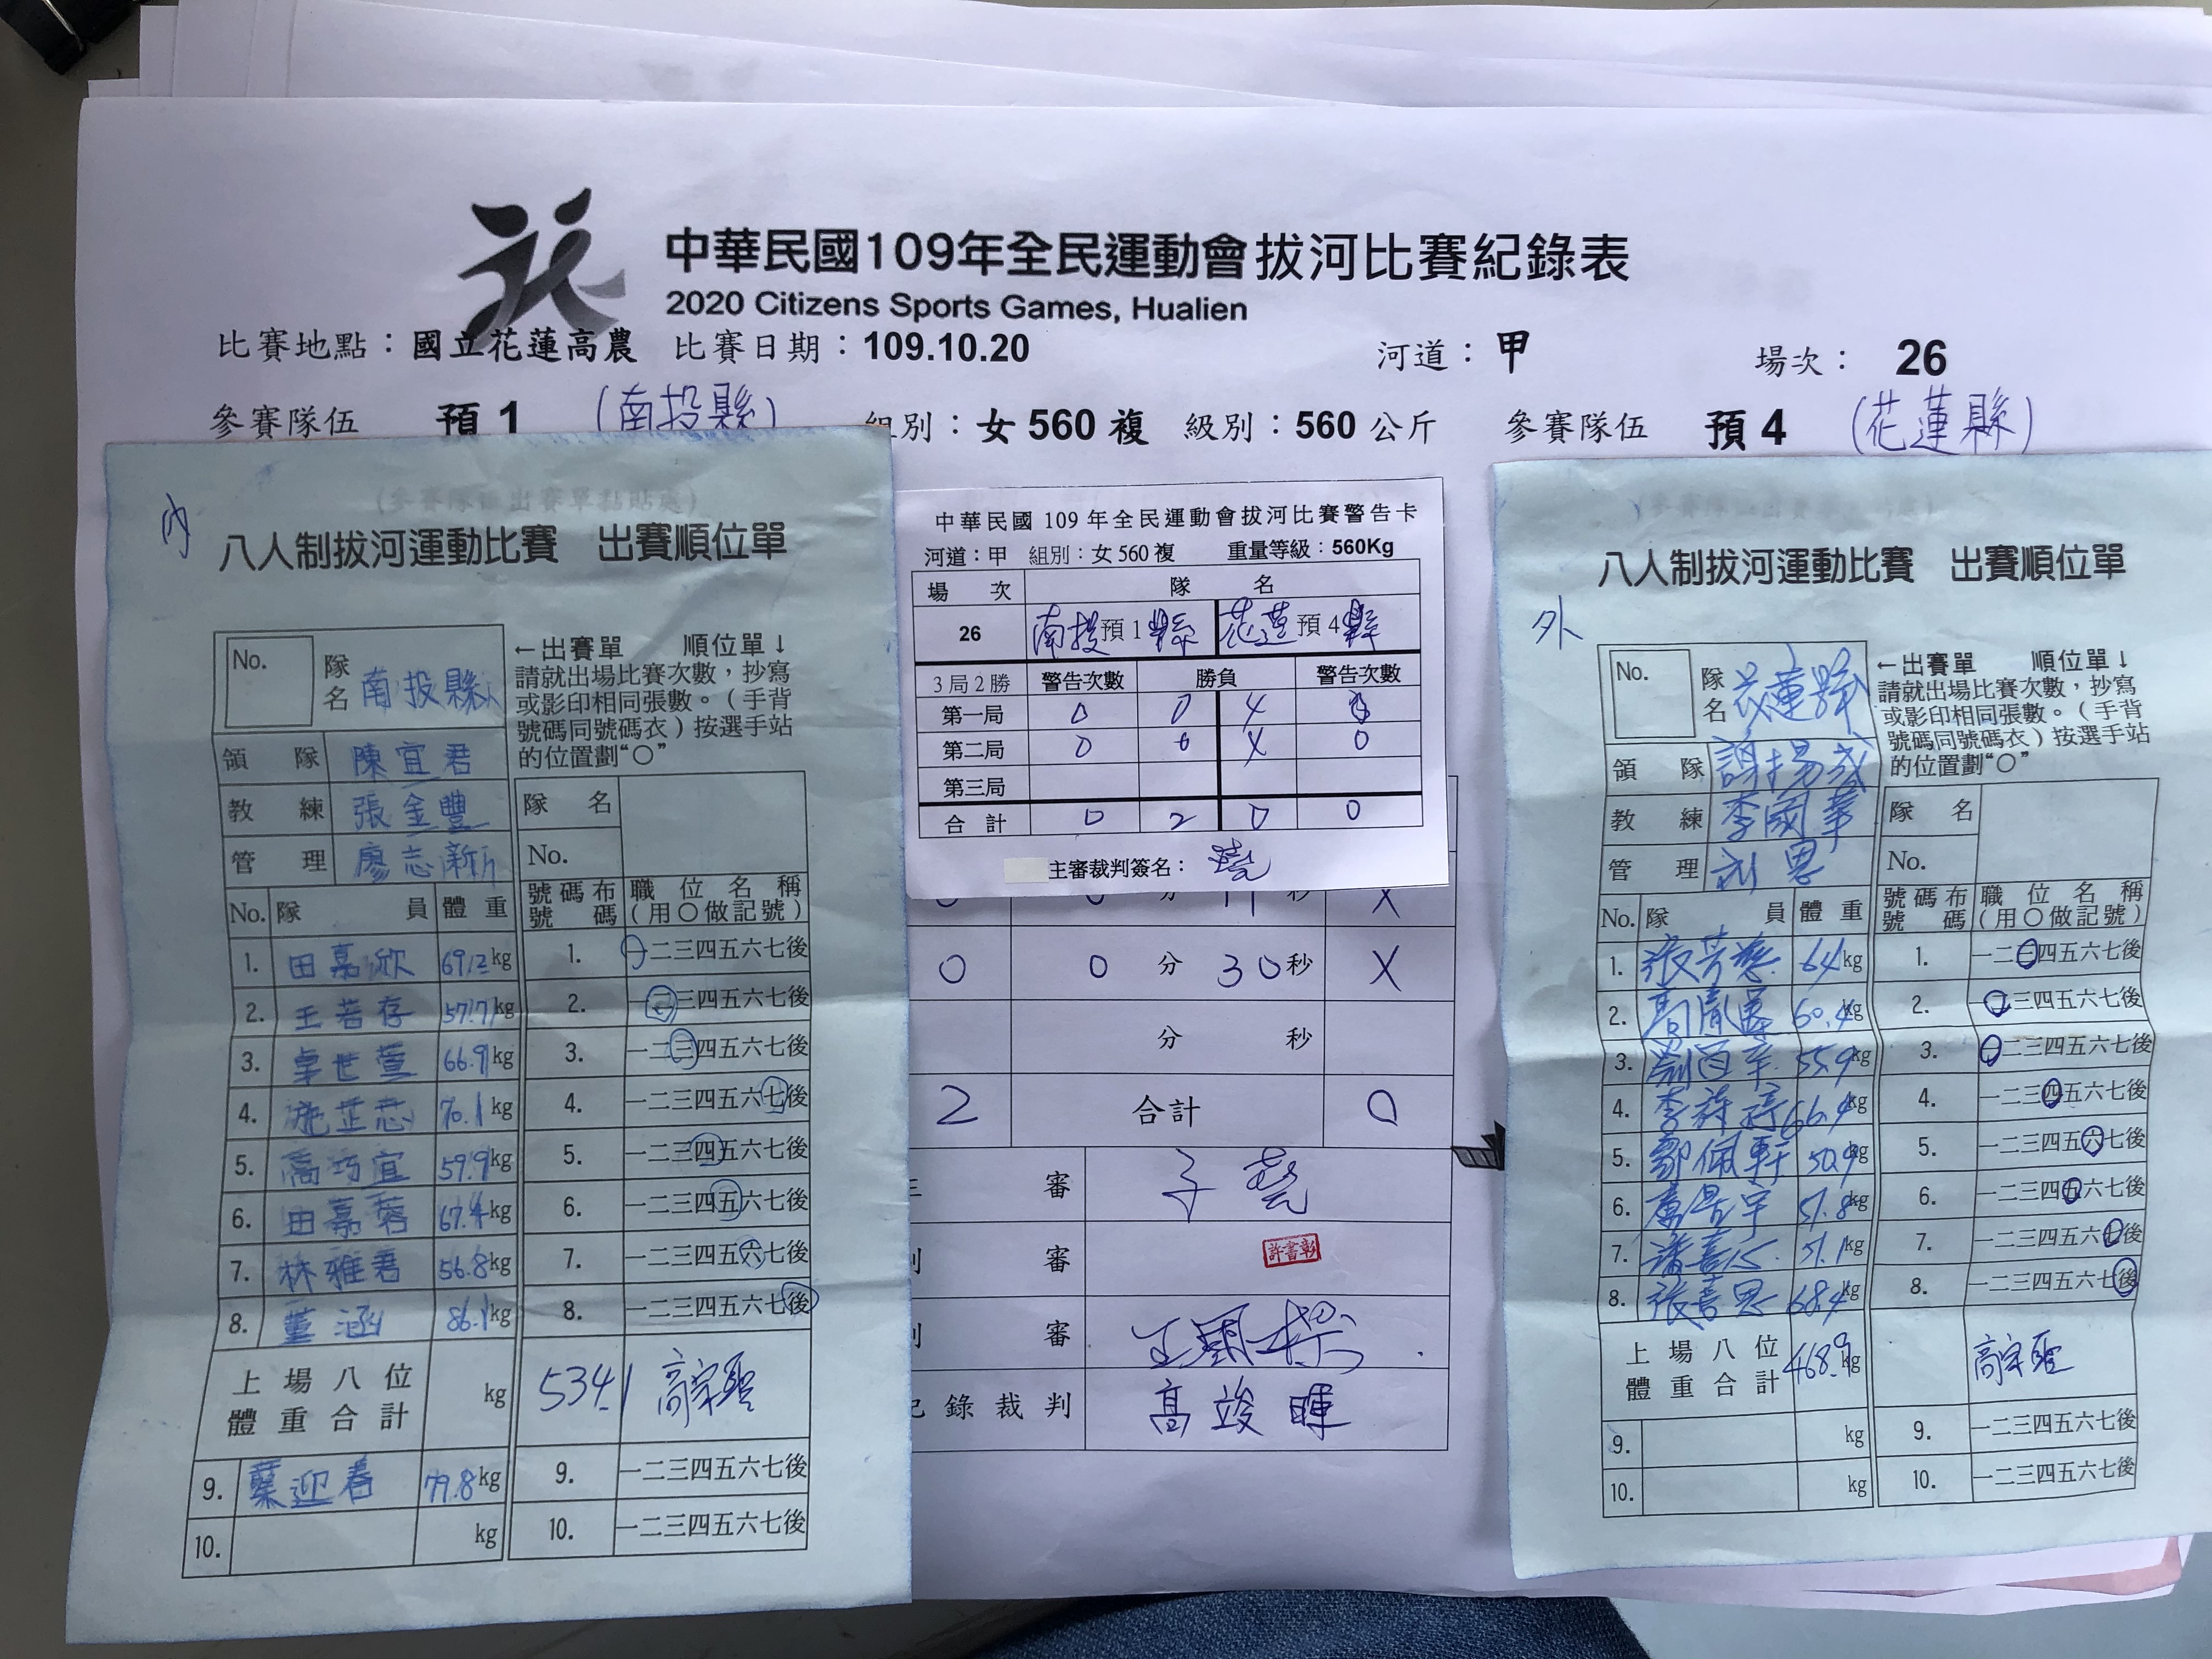 中華民國109年全民運動會拔河比賽紀錄表
2020 Citizens Sports Games, Hualien
比賽地點：國立花蓮高農 比賽日期：109.10.20 河道：甲 場次： 26
參賽隊伍 預1 (南投縣) 組別：女560複 級別：560公斤 參賽隊伍 預4 (花蓮縣)
內
八人制拔河運動比賽 出賽順位單
No.
隊名 南投縣
←出賽單 順位單↓
請就出場比賽次數，抄寫
或影印相同張數。（手背
號碼同號碼衣）按選手站
的位置劃“○”
領隊 陳宜君
教練 張金豐
管理 廖志新
隊名
No.
No. 隊員 體重 號碼布號碼 職位名稱（用○做記號）
1. 田嘉欣 69.2kg 1. 一二三四五六七後
2. 王若存 57.7kg 2. 一二三四五六七後
3. 卓世萱 66.9kg 3. 一二三四五六七後
4. 70.1kg 4. 一二三四五六七後
5. 高巧宜 59.9kg 5. 一二三四五六七後
6. 田嘉蓉 67.4kg 6. 一二三四五六七後
7. 林雅君 56.8kg 7. 一二三四五六七後
8. 董涵 86.1kg 8. 一二三四五六七後
上場八位體重合計 kg 534.1 高宗聖
9. 葉迎春 79.8kg 9. 一二三四五六七後
10. kg 10. 一二三四五六七後
中華民國109年全民運動會拔河比賽警告卡
河道：甲 組別：女560複 重量等級：560Kg
場次 隊名
26 南投預1縣 花蓮預4縣
3局2勝 警告次數 勝負 警告次數
第一局 0 0 X 0
第二局 0 0 X 0
第三局
合計 0 2 0 0
主審裁判簽名：
0 分 11 秒 X
0 0 分 30 秒 X
分 秒
2 合計 0
審
審 許書彰
審
錄裁判 高竣暉
外
八人制拔河運動比賽 出賽順位單
No.
隊名 花蓮縣
←出賽單 順位單↓
請就出場比賽次數，抄寫
或影印相同張數。（手背
號碼同號碼衣）按選手站
的位置劃“○”
領隊
教練 李國華
管理
隊名
No.
No. 隊員 體重 號碼布號碼 職位名稱（用○做記號）
1. 64kg 1. 一二三四五六七後
2. 60.4kg 2. 一二三四五六七後
3. 55.9kg 3. 一二三四五六七後
4. 66.4kg 4. 一二三四五六七後
5. 鄒佩軒 50.9kg 5. 一二三四五六七後
6. 51.8kg 6. 一二三四五六七後
7. 51.1kg 7. 一二三四五六七後
8. 張喜恩 68.4kg 8. 一二三四五六七後
上場八位體重合計 468.9kg 高宗聖
9. kg 9. 一二三四五六七後
10. kg 10. 一二三四五六七後